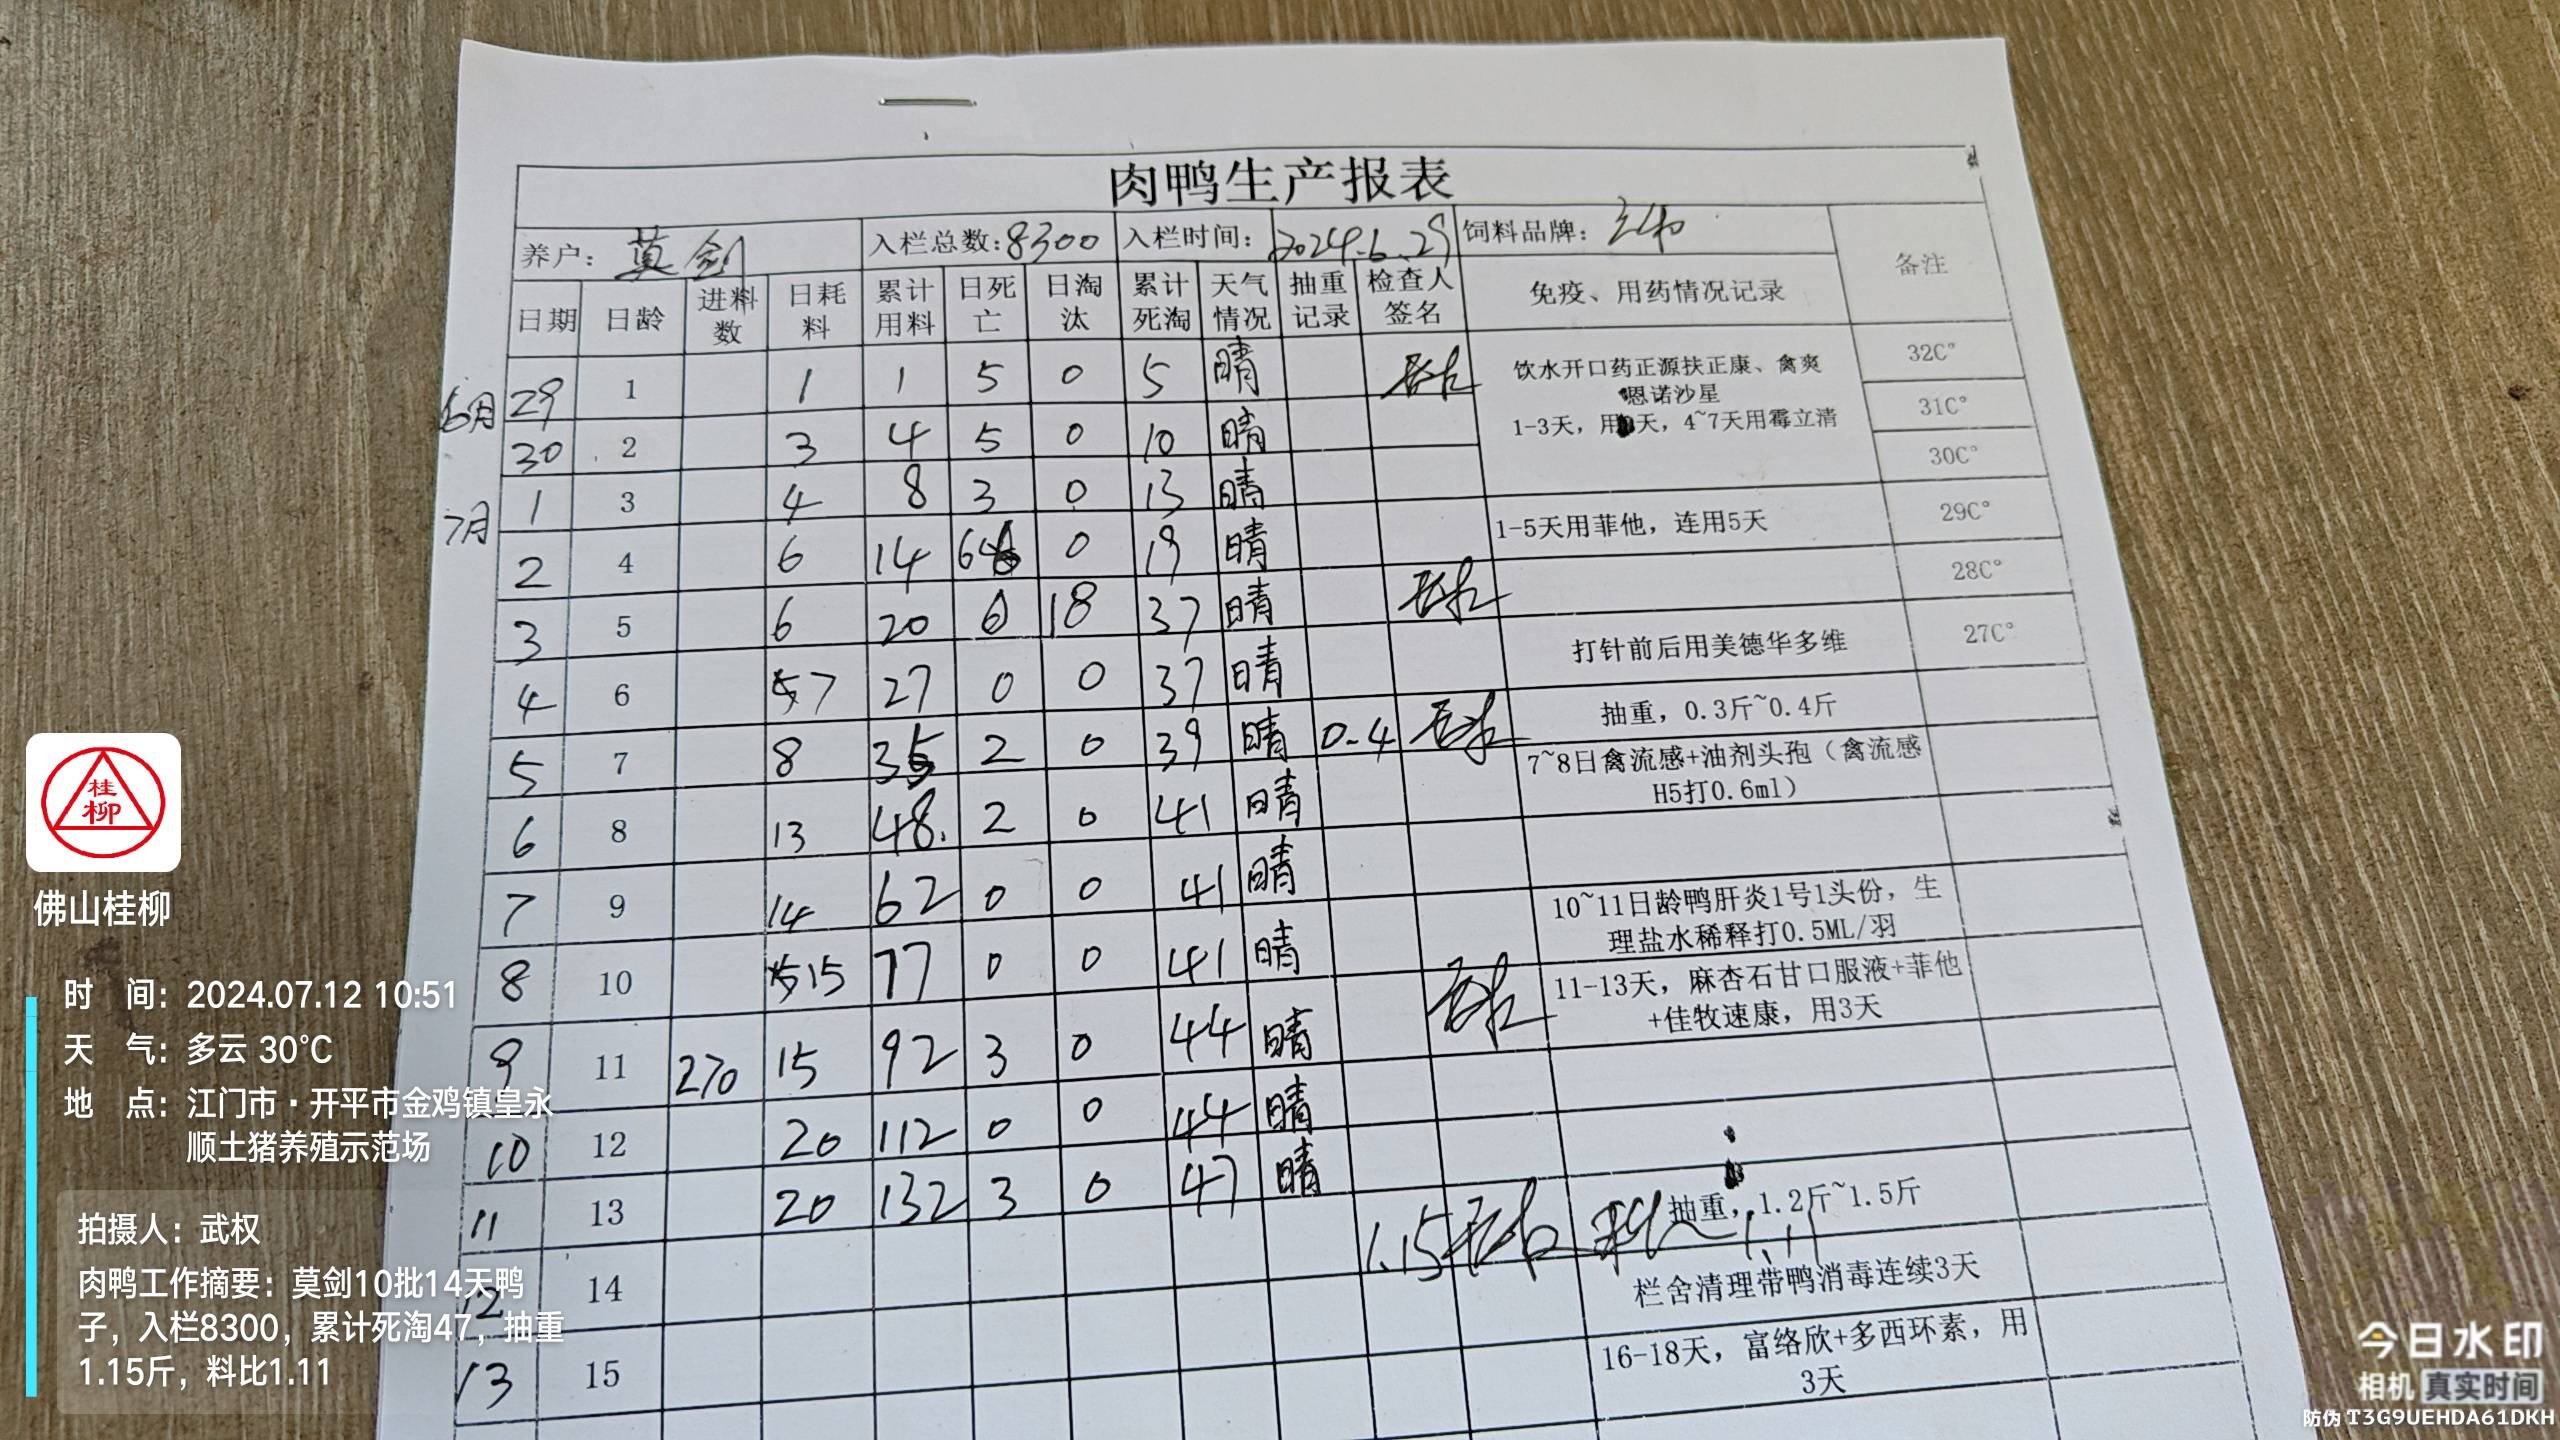 肉鸭生产报表
养户：莫剑 入栏总数：8300 入栏时间：2024.6.29 饲料品牌：
备注
日期 日龄 进料数 日耗料 累计用料 日死亡 日淘汰 累计死淘 天气情况 抽重记录 检查人签名 免疫、用药情况记录
6月 29 1 1 1 5 0 5 晴
饮水开口药正源扶正康、禽爽
恩诺沙星
1-3天，用天，4~7天用霉立清
32C°
30 2 3 4 5 0 10 晴 31C°
7月 1 3 4 8 3 0 13 晴 30C°
2 4 6 14 6 0 19 晴 1-5天用菲他，连用5天 29C°
3 5 6 20 0 18 37 晴 28C°
4 6 7 27 0 0 37 晴 打针前后用美德华多维 27C°
5 7 8 35 2 0 39 晴 0.4 抽重，0.3斤~0.4斤
6 8 13 48. 2 0 41 晴 7~8日禽流感+油剂头孢（禽流感
H5打0.6ml）
7 9 14 62 0 0 41 晴
8 10 15 77 0 0 41 晴 10~11日龄鸭肝炎1号1头份，生
理盐水稀释打0.5ML/羽
9 11 270 15 92 3 0 44 晴 11-13天，麻杏石甘口服液+菲他
+佳牧速康，用3天
10 12 20 112 0 0 44 晴
11 13 20 132 3 0 47 晴
1.15 料比 1.11 抽重，1.2斤~1.5斤
12 14 栏舍清理带鸭消毒连续3天
13 15 16-18天，富络欣+多西环素，用
3天
桂
柳
佛山桂柳
时 间：2024.07.12 10:51
天 气：多云 30℃
地 点：江门市·开平市金鸡镇皇永
顺土猪养殖示范场
拍摄人：武权
肉鸭工作摘要：莫剑10批14天鸭
子，入栏8300，累计死淘47，抽重
1.15斤，料比1.11
今日水印
相机 真实时间
防伪 T3G9UEHDA61DKH